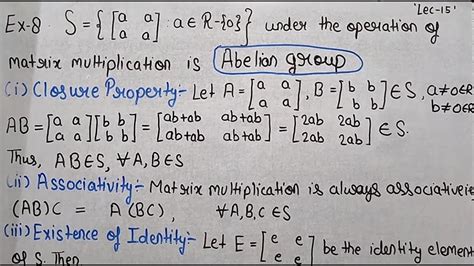 'Lec-15'
Ex-8 S = {[a a; a a] : a ∈ R-{0}} under the operation of
matrix multiplication is Abelian group
(i) Closure Property:- Let A = [a a; a a], B = [b b; b b] ∈ S, a≠0∈R b≠0∈R
AB = [a a; a a][b b; b b] = [ab+ab ab+ab; ab+ab ab+ab] = [2ab 2ab; 2ab 2ab] ∈ S.
Thus, AB∈S, ∀A,B∈S
(ii) Associativity:- Matrix multiplication is always associative ie
(AB)C = A(BC), ∀A,B,C ∈S
(iii) Existence of Identity:- Let E = [e e; e e] be the identity element
of S. Then